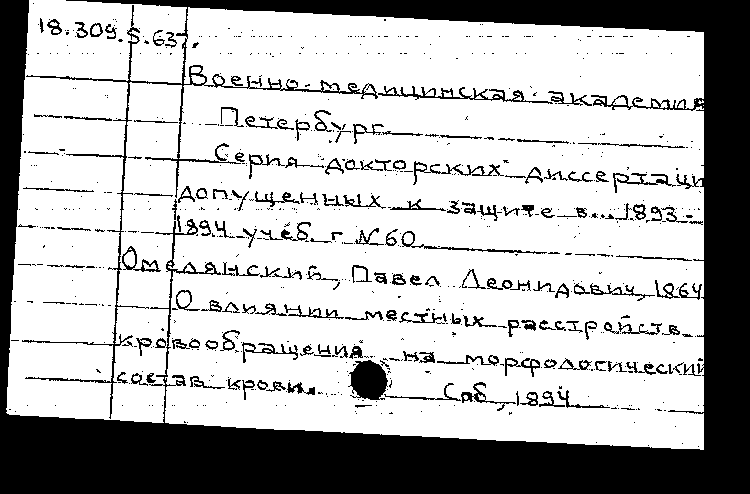 18.309.S.637.
Военно-медицинская академия
Петербург.
Серия докторских диссертаци
допущенных к защите в... 1893-
1894 учеб. г №60.
Омелянский, Павел Леонидович, 1864
О влиянии местных расстройств
кровообращения на морфологический
состав крови. Спб., 1894.